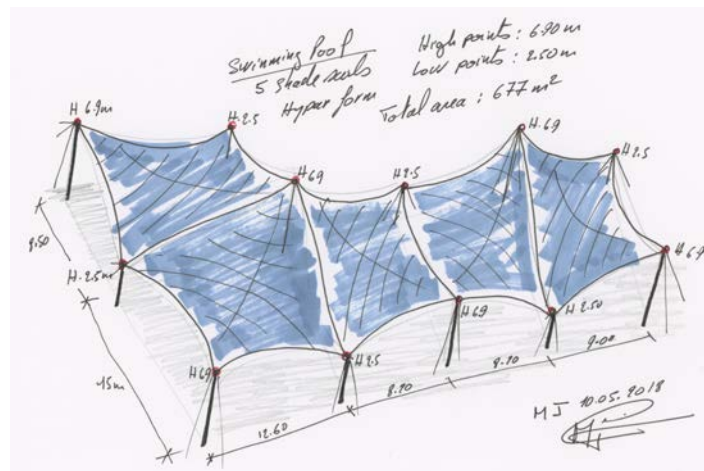 Swimming Pool
5 shade sails
Hypar form
High points: 6.90m
Low points: 2.50m
Total area: 677 m²
H 6.9m
H.2.5
H.69
H2.5
H.69
H2.5
H.2.5m
H69
H2.5
H69
H2.50
H6.9
9.50
15m
12.60
8.20
8.20
9.00
MJ 10.05.2018